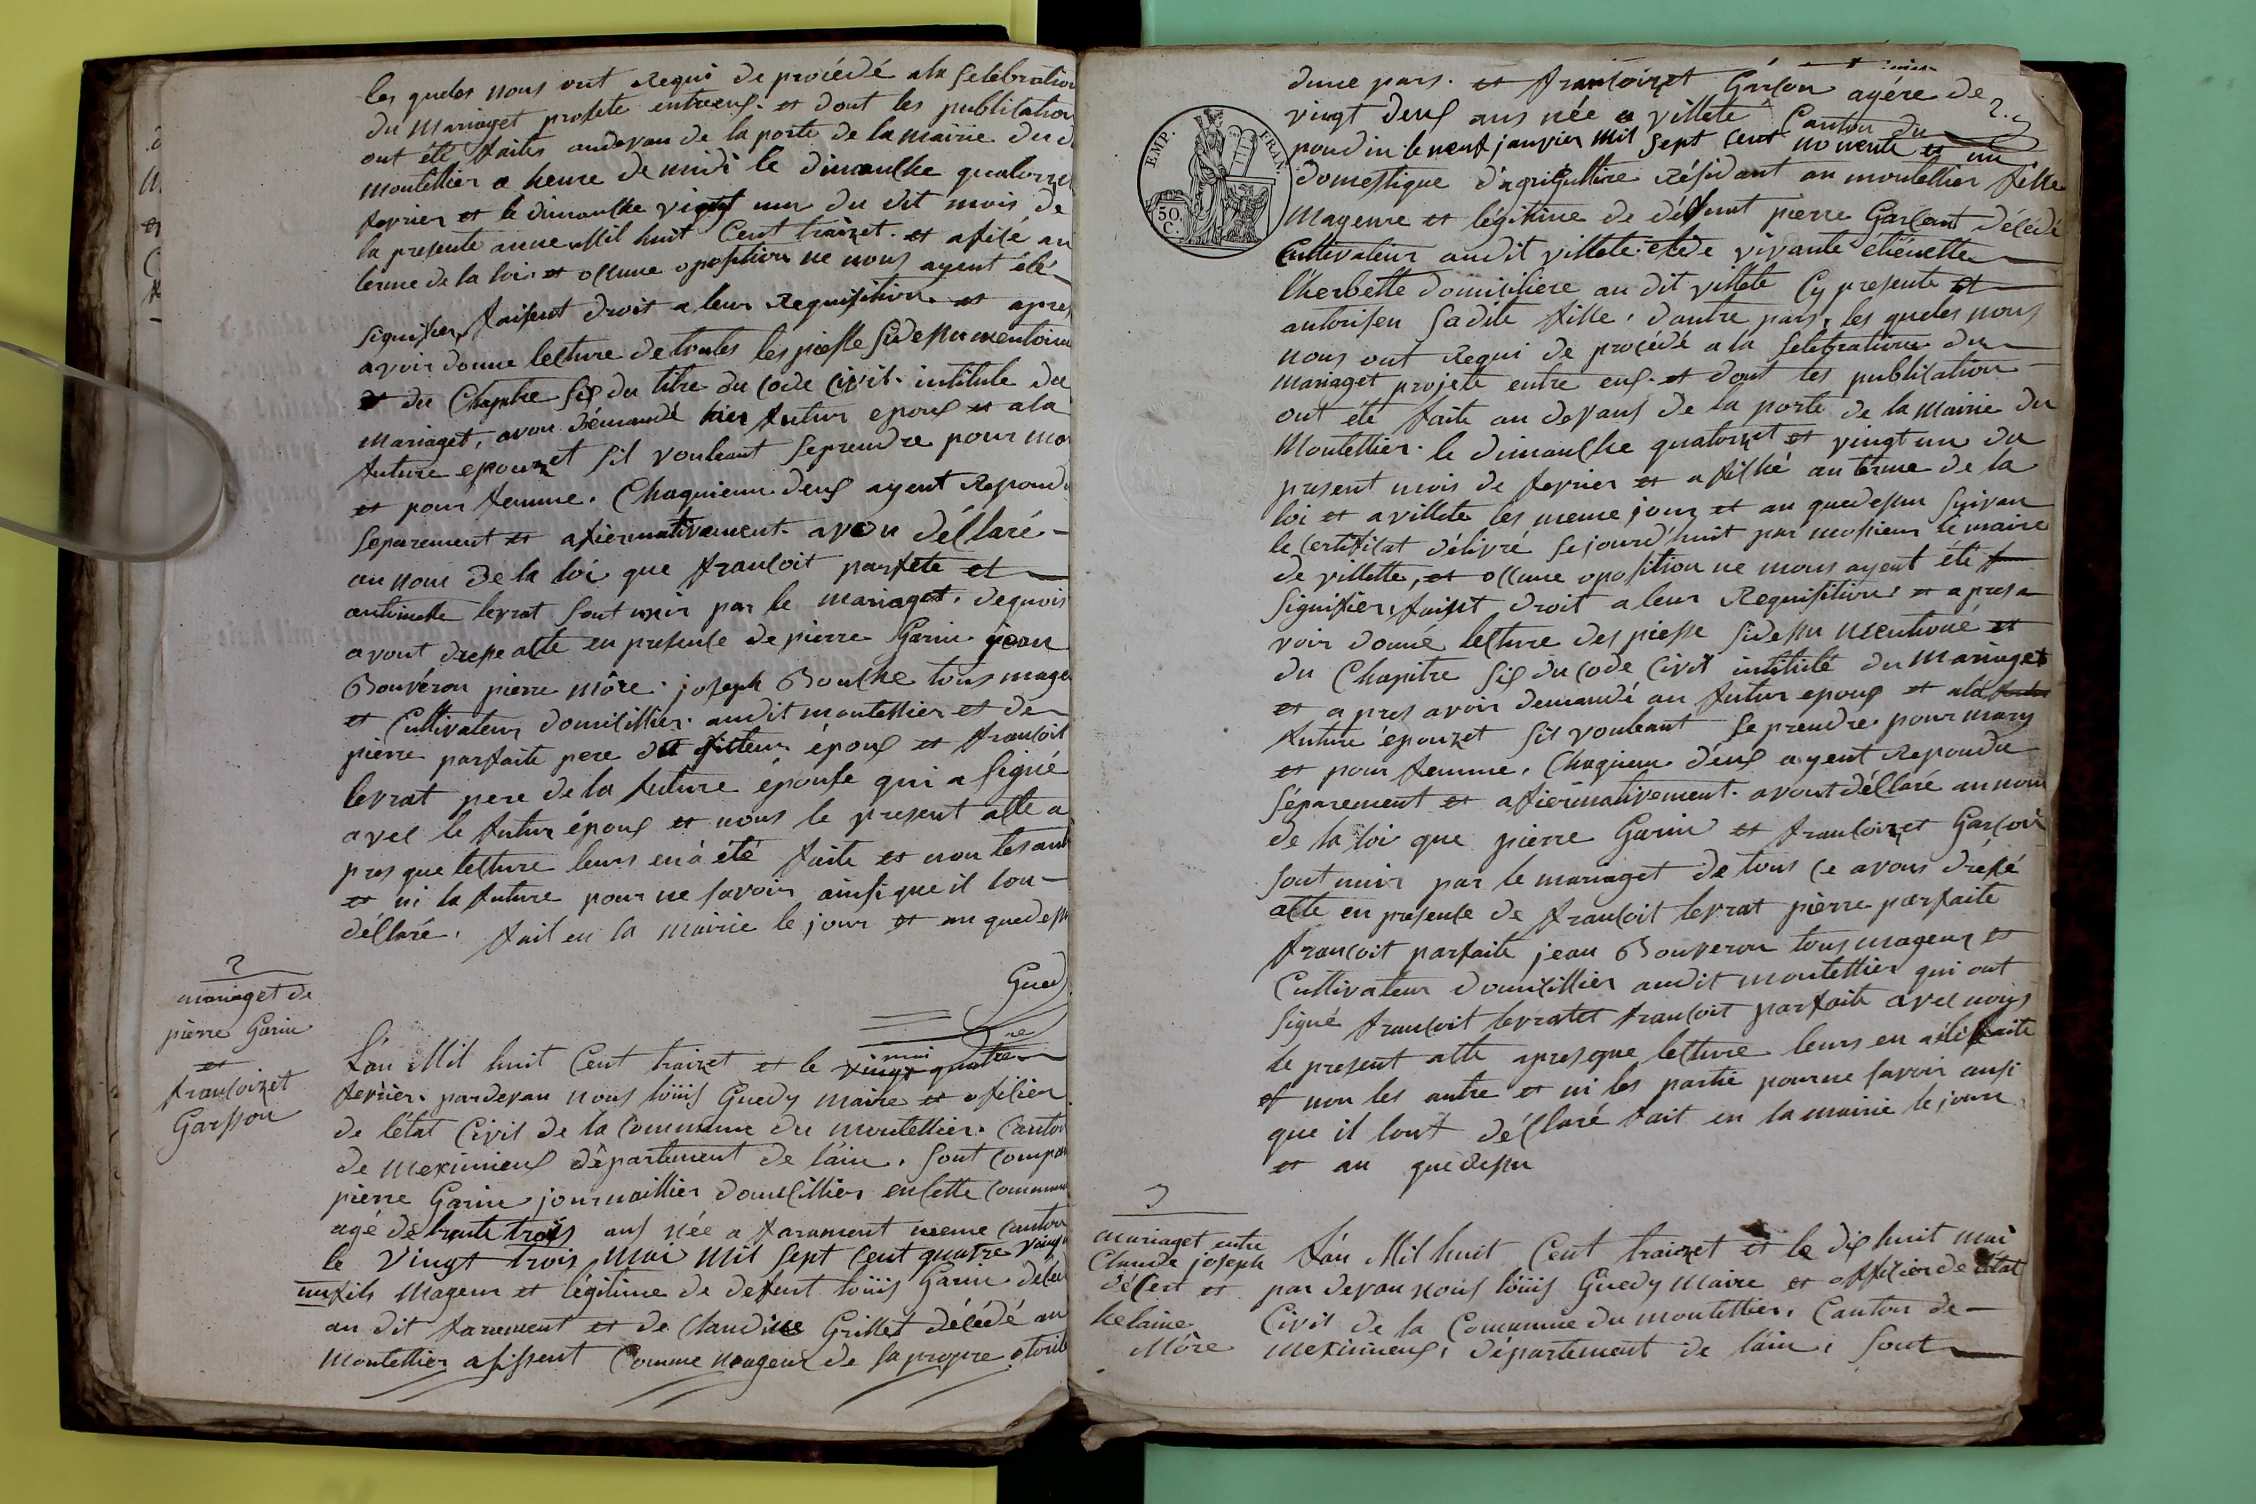 les queles nous ont Requi de procédé ala Selebration
du Mariaget projete entreeux. et dont les publication
ont été faites audevan de la porte de la Mairie du d
montellier a heure de midi le dimanche quatorzet
fevrier et le dimanche vingt un du dit mois de
la presente anne Mil huit Cent traizet. et afilé au
terme de la loi. et occune oposition ne nous ayent été
Signifier, faisent droit a leur Requisition. et apres
avoir donne lecture de toutes les piesse Sidessu mentoine
et du Chapitre Six du titre du Code Civil. intitule du
Mariaget, avon demandé hier futur epoux et ala
future epouzet Sil vouleant Seprendre pour ma
et pour femme. Chaquieun deux ayent Repondu
Separement et afiermativement. avon déllaré
au nom de la loi que francoit parfete et
antoinette levrat Sont unir par le mariaget. dequois
avont dresse alte en presense de pierre Garin jean
Bouveron pierre Môre. joseph Bouche tous mage
et Cultivateur domicillier. audit montellier et de
pierre parfaite pere du futeur époux et francoit
levrat pere de la future épouse qui a Signé
avec le futur époux et nous le present alte a
pres que lecture leurs en à été faite et non les aut
et ni la future pour ne savoir ainsi que il lon
déllaré. fait en la mairie le jour et an quedessu
Guedy
2
mariaget de
pierre Garin
et
francoizet
Garsson
mai
L'an Mil huit Cent traizet et le vingt quatre
fevrier. pardevan nous loüis Guedy maire et oficier
de l'état Civil de la Commune du montellier. Canton
de meximieux département de l'ain, Sont Compar
pierre Garin journaillier domicillier encette Commune
agé de trente trois ans née a faramant meme Canton
le Vingt trois Mai mil Sept Cent quatre vingt
un fils Mageur et légitime de defunt loüis Garin deced
au dit faremant et de Claudine Grillet décédé au
Montellier assissent Comme Mageur de Sa propre otorité
EMP. FRAN.
50.
C.
dune pars. et francoizet Garson agére de
vingt deux ans née a villete Canton du
pondin le neuf janvier mil Sept Cent nonente et un
domestique d'agriculture Résidant au montellier fille
Mageure et légitime de défunt pierre Garcont décédé
Cultivateur audit villete et de vivante etiénette
l'herbette domiciliere au dit villete Cy presente et
autoriseu Sadite fille, d'autre pars, les queles nous
nous ont Requi de procédé ala Selebration du
mariaget projete entre eux. et dont les publication
ont été faite au devant de la porte de la Mairie du
Montellier. le dimanche quatorzet et vingt un du
present mois de fevrier et afiché au terme de la
loi et a villete les meme jour et an quedessu Suivan
le Certificat délivré Sejourd'huit par mosieur le maire
de villette, et occune oposition ne nous ayent été
Signifier, faisent droit a leur Requisition. et apres a
voir donné lecture des piesse Sidessu mentioné et
du Chapitre Six du Code Civil intitulé du Mariaget
et apres avoir demandé au futur epoux et ala
future épouzet Sil vouleant Se prendre pour mary
et pour femme, Chaquieun d'eux ayent Repondu
Séparement et afiermativement. avont déllaré au nom
de la loi que pierre Garin et francoizet Garcon
Sont unir par le mariaget de tous ce avons dressé
alte en presense de francoit levrat pierre parfaite
francoit parfaite jean Bouveron tous mageur et
Cultivateur domicillier audit montellier qui ont
Signé francoit levrat et francoit parfaite avec nous
le present alte apres que lecture leurs en a été faite
et non les autre et ni les partie pour ne savoir ansi
que il lont déllaré fait en la mairie le jour
et an quedessu
3
mariaget entre
Claude joseph
délert et
helaine
Môre
L'an Mil huit Cent traizet et le dix huit mai
par devan nous loüis Guedy Maire et officier de l'état
Civil de la Commune du montellier. Canton de
meximieux, département de l'ain, Sont